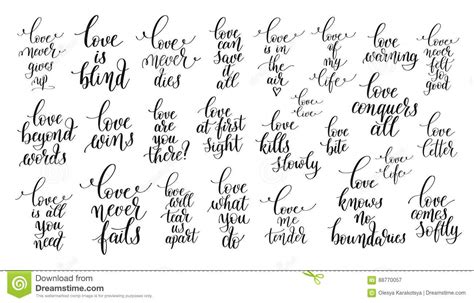 love
never
gives
up
love
is
blind
love
never
dies
love
can
save
it
all
love
is in
the
air
love
of
my
life
love
warning
love
never
felt
so
good
love
beyond
words
love
wins
love
are
you
there?
love
at first
sight
love
live
love
kills
slowly
love
bite
love
conquers
all
love
letter
love
is all
you
need
love
never
fails
love
will
tear
us
apart
love
what
you
do
love
me
tender
love
life
love
knows
no
boundaries
love
comes
softly
Download from
Dreamstime.com
This watermarked comp image is for previewing purposes only.
88770057
Olesya Karakotsya | Dreamstime.com